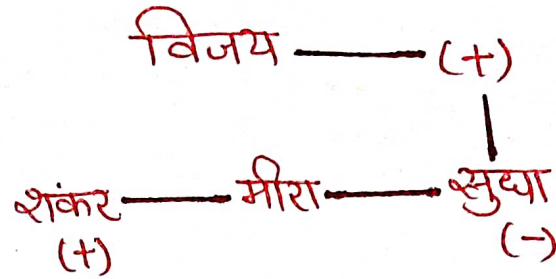 विजय (+)
शंकर मीरा सुधा
(+) (-)